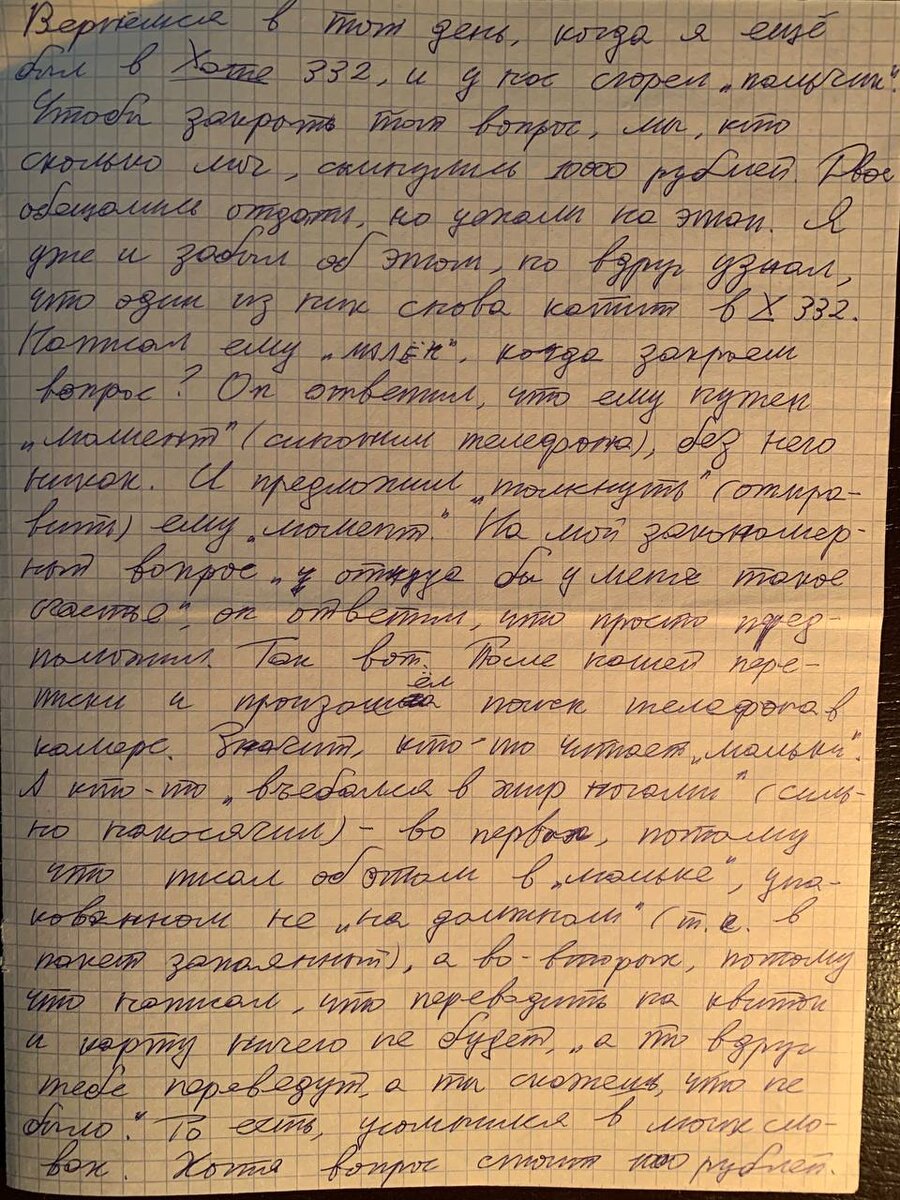 Вернёмся в тот день, когда я ещё
был в Хате 332, и у нас сгорел „пацычик".
Чтобы закрыть тот вопрос, мы, кто
сколько мог, скинулись 10000 рублей. Двое
обещались отдать, но уехали на этап. Я
уже и забыл об этом, но вдруг узнал,
что один из них снова катит в Х 332.
Написал ему „малёк", когда закроем
вопрос? Он ответил, что ему нужен
„момент" (синоним телефона), без него
никак. И предложил „толкнуть" (отпра-
вить) ему „момент". На мой закономер-
ный вопрос „откуда бы у меня такое
счастье", он ответил, что просто пред-
положил. Так вот. После нашей пере-
писки и произошёл поиск телефона в
камере. Значит, кто-то читает „мальки".
А кто-то „въебался в жир ногами" (силь-
но накосячил) – во первых, потому
что писал об этом в „мальке", упа-
кованном не „на должном" (т.е. в
пакет запаянный), а во-вторых, потому
что написал, что переводить на квиток
и карту ничего не будет, „а то вдруг
тебе переведут, а ты скажешь, что не
было". То есть, усомнился в моих сло-
вах. Хотя вопрос стоит 1000 рублей.